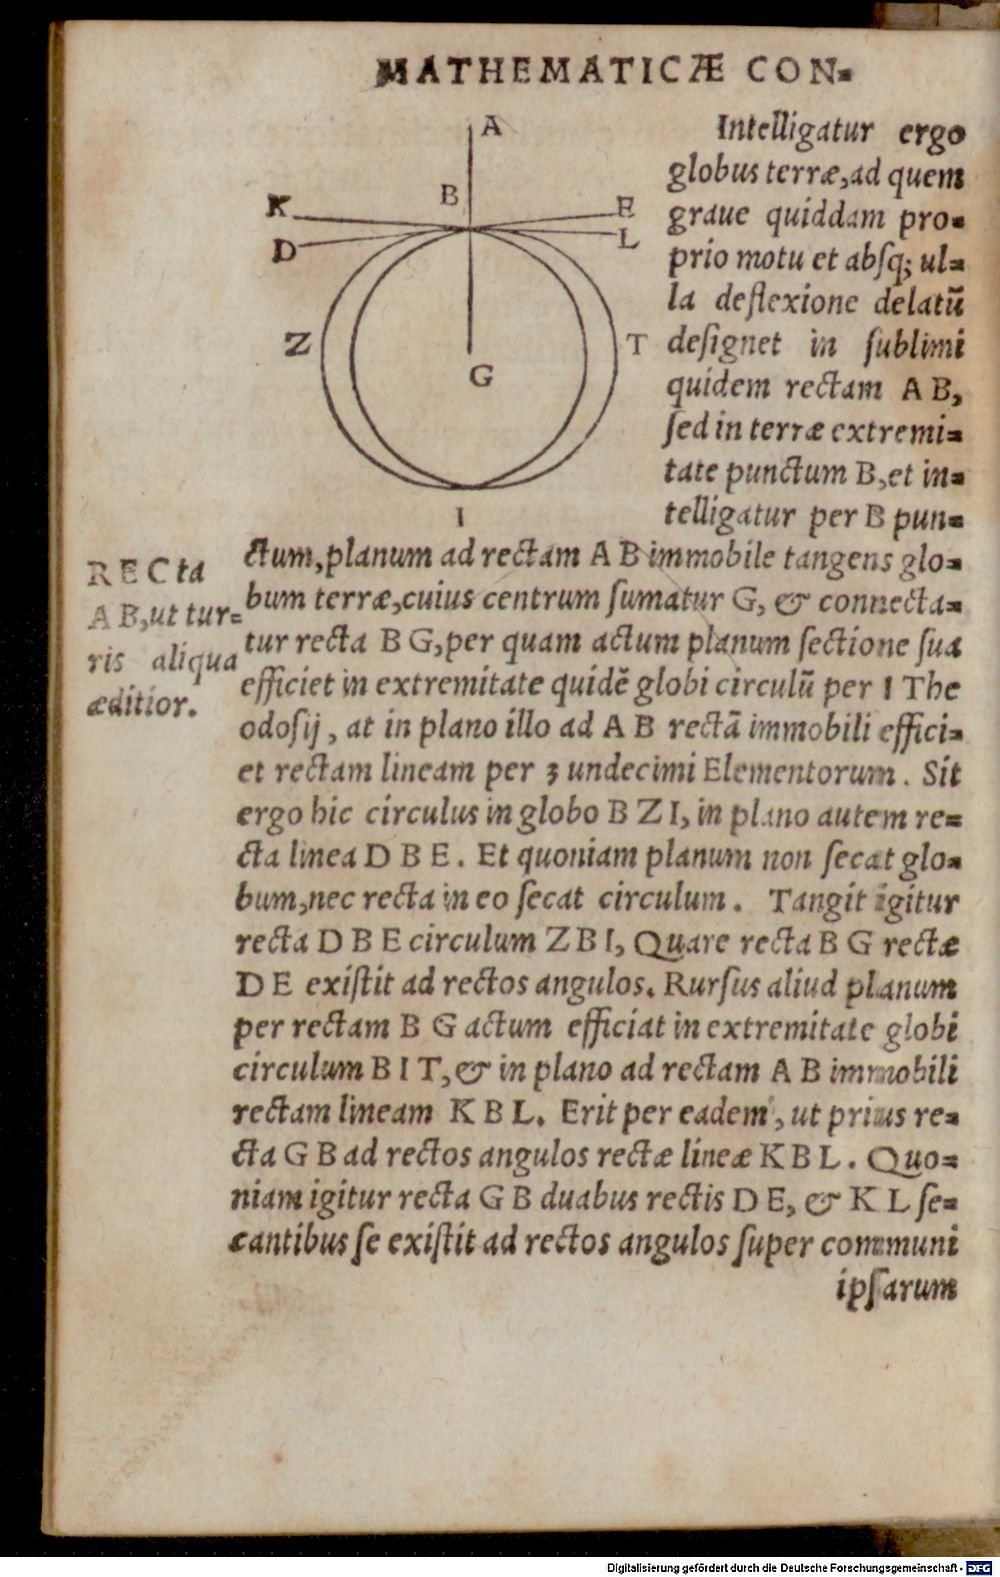 MATHEMATICÆ CON-
A
B
K
E
D
L
Z
T
G
I
Intelligatur ergo
globus terræ, ad quem
graue quiddam pro-
prio motu et absq; ul-
la deflexione delatū
designet in sublimi
quidem rectam A B,
sed in terræ extremi-
tate punctum B, et in-
telligatur per B pun-
ctum, planum ad rectam A B immobile tangens glo-
bum terræ, cuius centrum sumatur G, & connecta-
tur recta B G, per quam actum planum sectione sua
efficiet in extremitate quidē globi circulū per 1 The
odosij, at in plano illo ad A B rectā immobili effici-
et rectam lineam per 3 undecimi Elementorum. Sit
ergo hic circulus in globo B Z I, in plano autem re-
cta linea D B E. Et quoniam planum non secat glo-
bum, nec recta in eo secat circulum. Tangit igitur
recta D B E circulum Z B I, Quare recta B G rectæ
D E existit ad rectos angulos. Rursus aliud planum
per rectam B G actum efficiat in extremitate globi
circulum B I T, & in plano ad rectam A B immobili
rectam lineam K B L. Erit per eadem, ut prius re-
cta G B ad rectos angulos rectæ lineæ K B L. Quo-
niam igitur recta G B duabus rectis D E, & K L se-
cantibus se existit ad rectos angulos super communi
ipsarum
RECta
A B, ut tur-
ris aliqua
æditior.
Digitalisierung gefördert durch die Deutsche Forschungsgemeinschaft - DFG